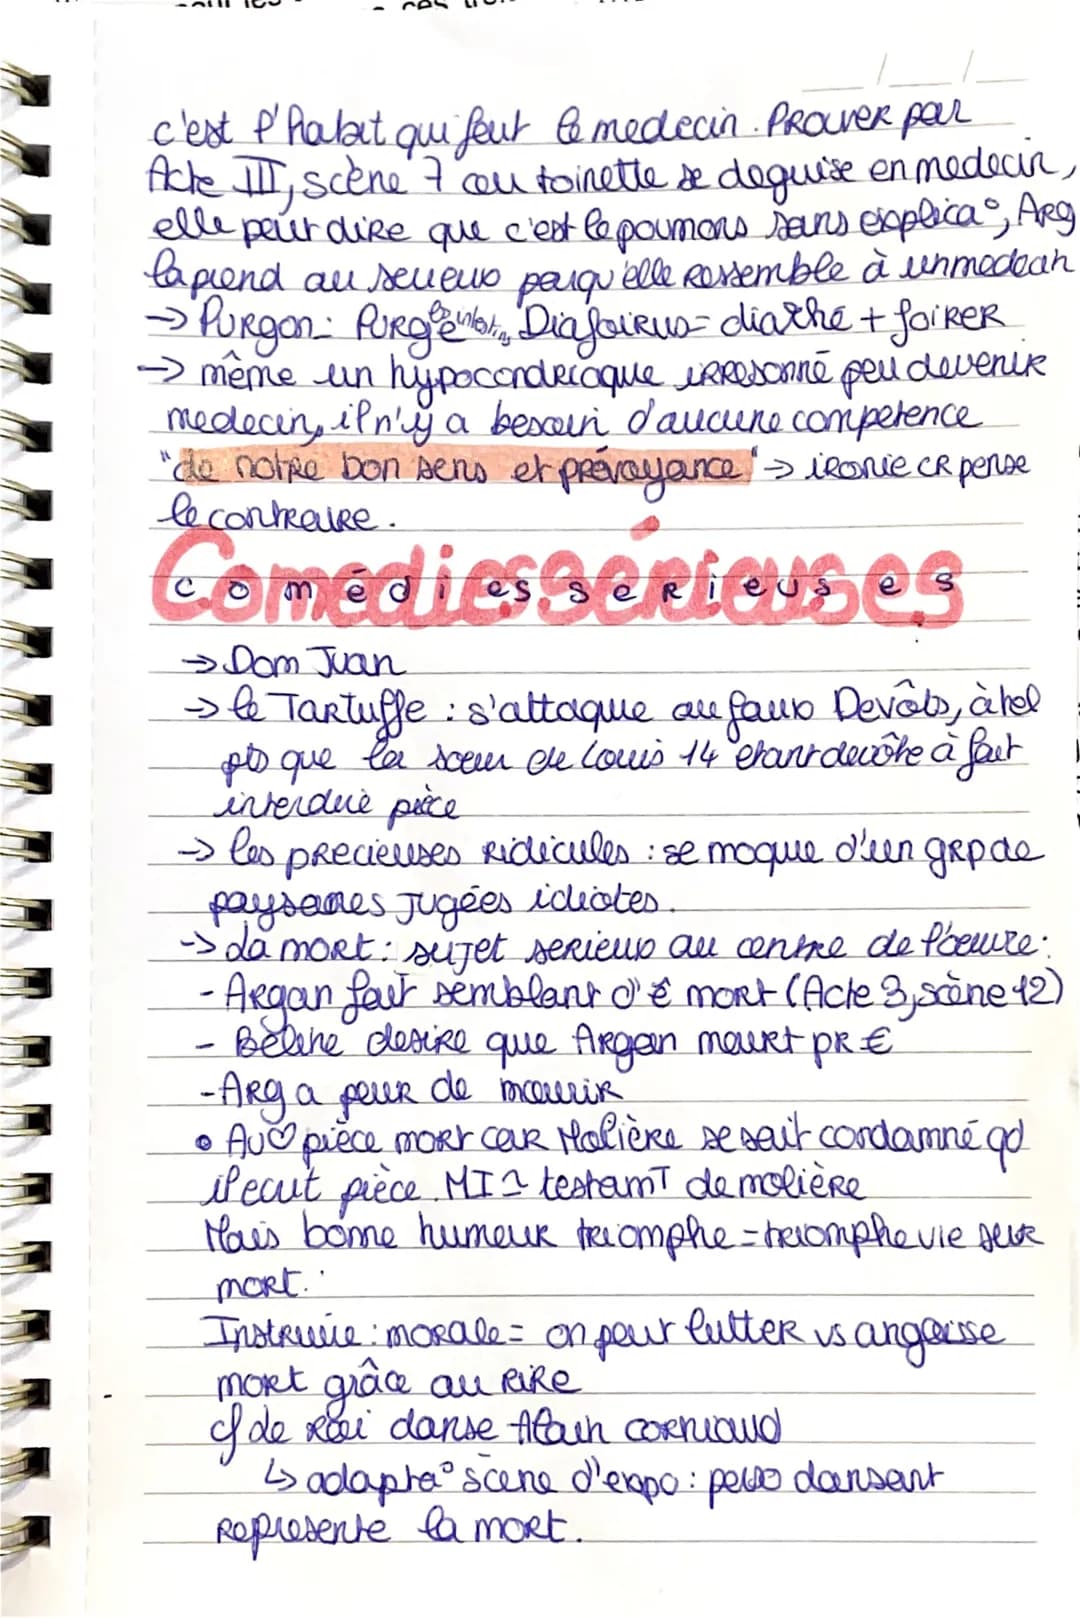 c'est l'habit qui feut le medecin. PRouver par
Acte III, scène 7 ou toinette se deguise en medecin,
elle peut dire que c'est le poumons sans explica°, Arg
la prend au serieux pasqu'elle Ressemble à un medecin
→ Purgon: Purge intestin, Diafoirus = diarhé + foiRER
→ même un hypocondriaque irresonné peu devenir
medecin, il n'y a besoin d'aucune competence
"de notre bon sens et prévoyance" → iRonie CR pense
le contraire.
Comédies sérieuses
comédies serieuses
→ Dom Juan
→ le Tartuffe : s'attaque au faux Devôts, à tel
pts que la soeur de Louis 14 etant devôte à fait
interdire pièce
→ les precieuses Ridicules : se moque d'un grp de
paysanes jugées idiotes.
→ La mort : sujet serieux au centre de l'oeuvre :
- Argan fait semblant d'ê mort (Acte 3, scène 12)
- Béline desire que Argan meurt pR €
- Arg a peur de mourir
• Au ♡ pièce mort car Molière se sait condamné qd
il ecrit pièce. MI ~ testamT de molière
Mais bonne humeur triomphe = triomphe vie sur
mort.
Instruire : morale = on peut lutter vs angoisse
mort grâce au Rire
cf le Roi danse Alain corniaud
↳ adapta° scene d'expo : perso dansant
Represente la mort.